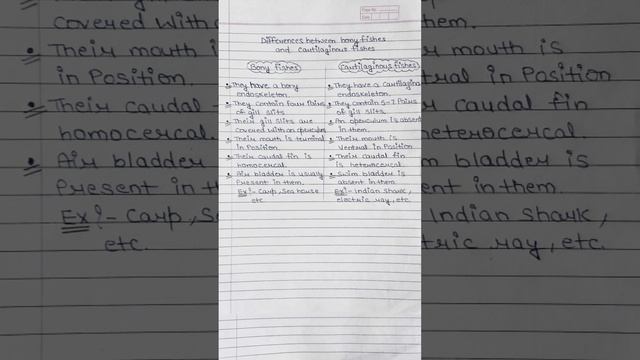 Page No.
Date
Differences between bony fishes
and cartilaginous fishes
Bony fishes
They have a bony
endoskeleton.
They contain four Pairs
of gill slits
Their gill slits are
covered with an operculum
Their mouth is terminal
in Position
Their caudal fin is
homocercal.
Air bladder is usually
Present in them.
Ex!- Carp, Sea house
etc
Cartilaginous fishes
They have a cartilaginous
endoskeleton.
They contain 5-7 Pairs
of gill slits.
An operculum is absent
in them.
Their mouth is
ventral in Position
Their caudal fin
is heterocercal.
Swim bladder is
absent in them.
Ex!- Indian Shark,
electric ray, etc.
covered with
Their mouth i
in Position.
Their caudal
homocercal.
Air bladder
Present in th
Ex!- Carp, Se
etc.
hem.
r mouth is
tral in Position
r caudal fin
heterocercal.
m bladder is
ent in them.
Indian Shark,
tric ray, etc.